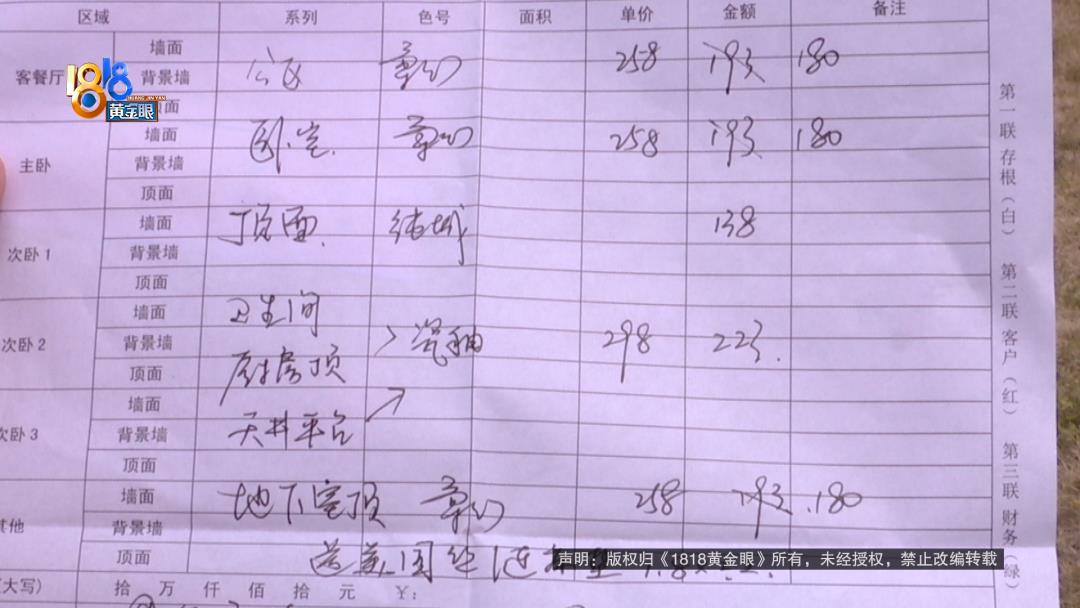 区域 系列 色号 面积 单价 金额 备注
客餐厅 墙面 258 193 180
背景墙 公区
顶面
主卧 墙面 卧室 258 193 180
背景墙
顶面
次卧1 墙面 顶面 138
背景墙
顶面
次卧2 墙面 卫生间
背景墙 瓷釉 298 223
顶面 厨房顶
次卧3 墙面
背景墙 天井平台
顶面
其他 墙面 地下室顶 258 193 180
背景墙
顶面
(大写) 拾 万 仟 佰 拾 元 ¥:
第一联 存根(白) 第二联 客户(红) 第三联 财务(绿)
1818
黄金眼
声明:版权归《1818黄金眼》所有,未经授权,禁止改编转载